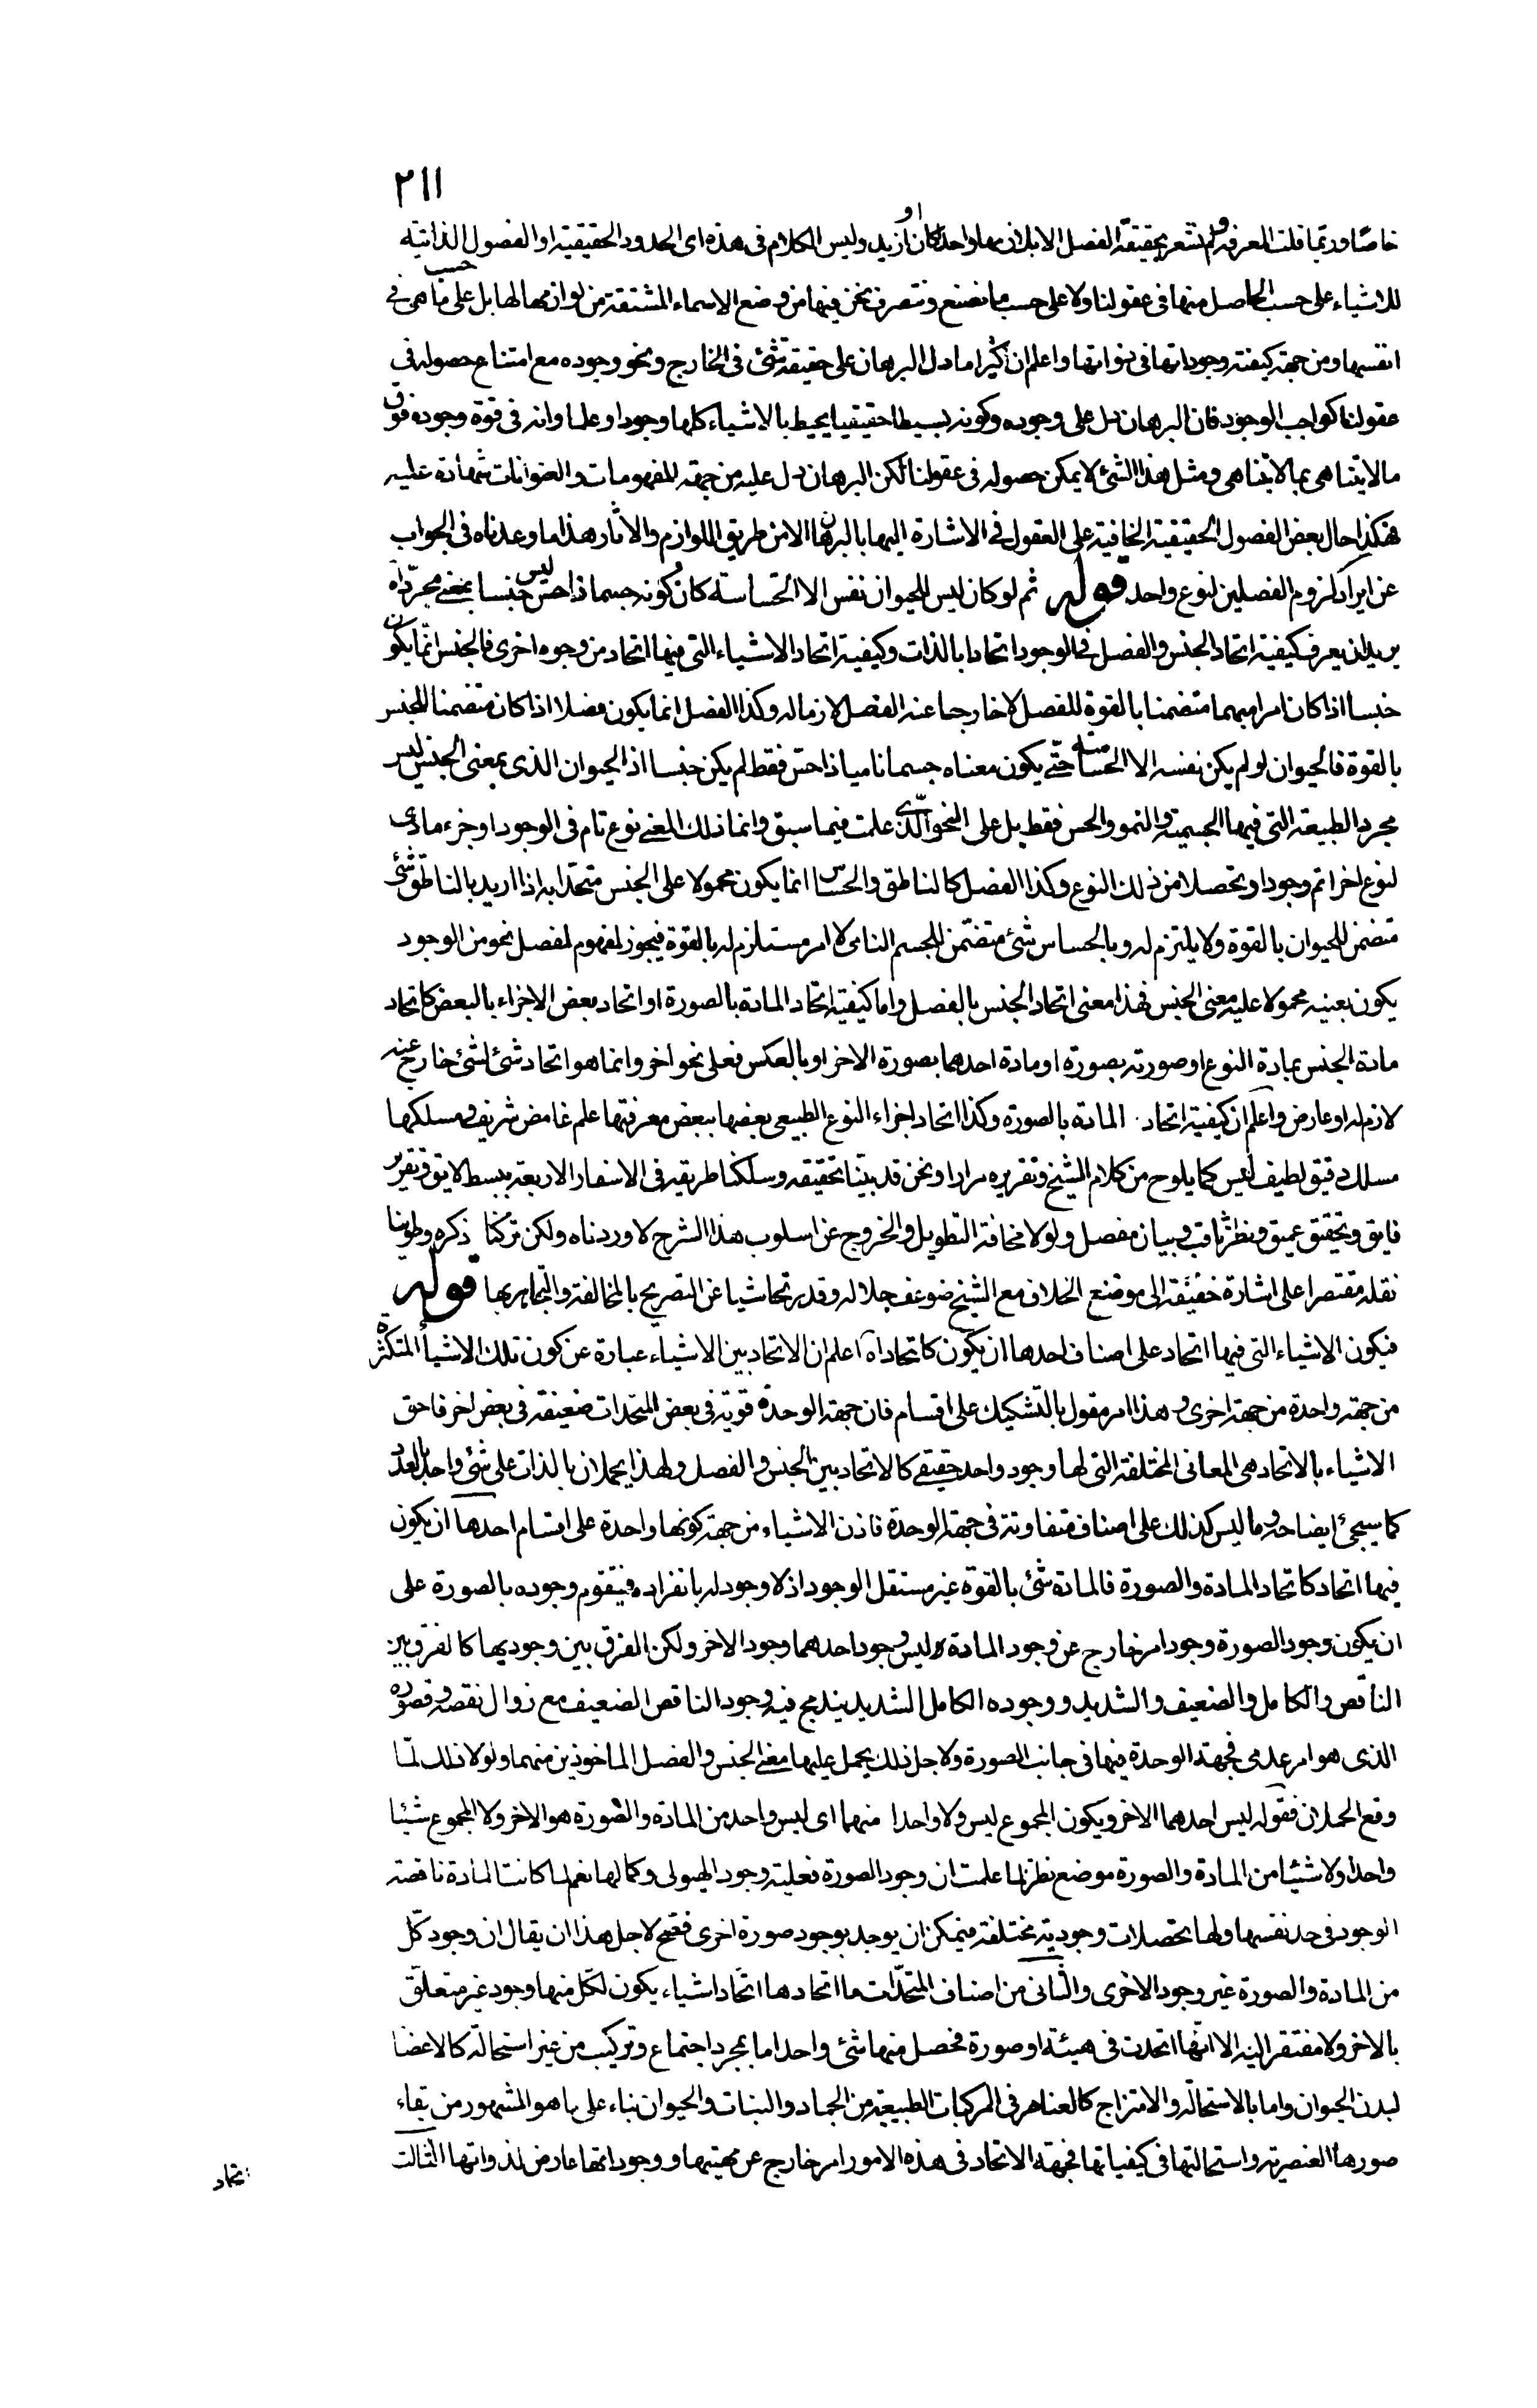 ٢١١
خاصّا وربّما قلت المعرفة ولم نشعر بحقيقة الفصل الا بلازمها واحدا كان او ازيد وليس الكلام فى هذه اى الحدود الحقيقية او الفصول الذاتية
للاشياء على حسب الحاصل منها فى عقولنا ولا على حسب ما نصنع ونتصرف نحن فيها من وضع الاسماء المشتقة من لوازمها لها بل على حسب ما هى فى
انفسها ومن جهة كيفية وجوداتها فى ذواتها واعلم ان كثيرا ما دل البرهان على حقيقة شئ فى الخارج ونحو وجوده مع امتناع حصوله فى
عقولنا كواجب الوجود فان البرهان دل على وجوده وكونه بسيطا حقيقيا يحيط بالاشياء كلها وجودا وعلما وانه فى قوة وجوده فوق
ما لا يتناهى بما لا يتناهى ومثل هذا الشئ لا يمكن حصوله فى عقولنا لكن البرهان دل عليه من جهة المفهومات والعنوانات شهادة عليه
هكذا حال بعض الفصول الحقيقية الخافية على العقول فى الاشارة اليها بالبرهان الا من طريق اللوازم والآثار هذا ما وعدناه فى الجواب
عن ايراد لزوم الفصلين لنوع واحد قوله ثم لو كان ليس للحيوان نفس الا الحساسة كان كونه جسما ذا حس ليس جنسا بمعنى مجرّد اه
يريد ان يعرف كيفية اتحاد الجنس والفصل فى الوجود اتحادا بالذات وكيفية اتحاد الاشياء التى فيها اتحاد من وجوه اخرى فالجنس انّما يكون
جنسا اذا كان امرا مبهما متضمنا بالقوة للفصل لا خارجا عنه الفصل لازما له وكذا الفصل انما يكون فصلا اذا كان متضمنا للجنس
بالقوة فالحيوان لو لم يكن نفسه الا الحسّاسة حتّى يكون معناه جسما ناميا ذا حسّ فقط لم يكن جنسا اذ الحيوان الذى بمعنى الجنس ليس
مجرد الطبيعة التى فيها الجسمية والنمو والحس فقط بل على النحو الّذى علمت فيما سبق وانما ذلك المعنى نوع تام فى الوجود او جزء مادى
لنوع اخر اتم وجودا وتحصلا من ذلك النوع وكذا الفصل كالناطق والحسّاس انما يكون محمولا على الجنس متحدا به اذا اريد بالناطق شئ
متضمن للحيوان بالقوة ولا يلتزم له وبالحساس شئ متضمّن للجسم النامى لا امر مستلزم له بالقوة فيجوز لمفهوم لمفصل نحو من الوجود
يكون بعينه محمولا عليه معنى الجنس فهذا معنى اتحاد الجنس بالفصل واما كيفية اتحاد المادة بالصورة او اتحاد بعض الاجزاء بالبعض كاتحاد
مادة الجنس بمادة النوع او صورته بصورة او مادة احدهما بصورة الاخر او بالعكس فعلى نحو اخر وانما هو اتحاد شئ لشئ خارج عنه
لازم له او عارض واعلم ان كيفية اتحاد المادة بالصورة وكذا اتحاد اجزاء النوع الطبيعى بعضها ببعض معرفتها علم غامض شريف ومسلكها
مسلك دقيق لطيف ليس كما يلوح من كلام الشيخ وتقريره مرارا ونحن قد بيّنا تحقيقه وسلكنا طريقه فى الاسفار الاربعة ببسط لايق وتقرير
فايق وتحقيق عميق ونظر ثاقب وبيان مفصل ولولا مخافة التطويل والخروج عن اسلوب هذا الشرح لاوردناه ولكن تركنا ذكره وطوينا
نقله مقتصرا على اشارة خفيّة الى موضع الخلاف مع الشيخ ضوعف جلاله وقدره تحاشيا عن التصريح بالمخالفة والتجاهر بها قوله
فيكون الاشياء التى فيها اتحاد على اصناف احدها ان يكون كاتحاد اه اعلم ان الاتحاد بين الاشياء عبارة عن كون تلك الاشياء المتكثرة
من جهة واحدة من جهة اخرى وهذا امر مقول بالتشكيك على اقسام فان جهة الوحدة قوية فى بعض المتحدات ضعيفة فى بعض اخر فاحق
الاشياء بالاتحاد هى المعانى المختلفة التى لها وجود واحد حقيقى كالاتحاد بين الجنس والفصل ولهذا يحملان بالذات على شئ واحد بالعدد
كما سيجئ ايضاحه وما ليس كذلك على اصناف متفاوتة فى جهة الوحدة فاذن الاشياء من جهة كونها واحدة على اقسام احدها ان يكون
فيها اتحاد كاتحاد المادة والصورة فالمادة شئ بالقوة غير مستقل الوجود اذ لا وجود له بانفراده فيتقوم وجوده بالصورة على
ان يكون وجود الصورة وجود امر خارج عن وجود المادة وليس وجود احدهما وجود الاخر ولكن الفرق بين وجوديهما كالفرق بين
الناقص والكامل والضعيف والشديد ووجوده الكامل الشديد يندمج فيه وجود الناقص الضعيف مع زوال نقصه وقصوره
الذى هو امر عدمى فجهة الوحدة فيها فى جانب الصورة ولاجل ذلك يحمل عليها معنى الجنس والفصل الماخوذين منهما ولولا ذلك لمّا
وقع الحملان فقوله ليس احدهما الاخر ويكون المجموع ليس ولا واحدا منهما اى ليس واحد من المادة والصورة هو الاخر ولا المجموع شيئا
واحدا ولا شيئا من المادة والصورة موضع نظر لما علمت ان وجود الصورة فعلية وجود الهيولى وكمالها نعم لما كانت المادة ناقصة
الوجود فى حد نفسها ولها تحصلات وجودية مختلفة فيمكن ان يوجد بوجود صورة اخرى فصح لاجل هذا ان يقال ان وجود كل
من المادة والصورة غير وجود الاخرى والثانى من اصناف المتحدات ما اتحادها اتحاد اشياء يكون لكل منها وجود غير متعلّق
بالاخر ولا مفتقر اليه الا انّها اتحدت فى هيئة او صورة فحصل منها شئ واحد اما بمجرد اجتماع وتركيب من غير استحالة كالاعضا
لبدن الحيوان واما بالاستحالة والامتزاج كالعناصر فى المركبات الطبيعية من الجماد والنبات والحيوان بناء على ما هو المشهور من بقاء
صورها العنصرية واستحالتها فى كيفياتها فجهة الاتحاد فى هذه الامور امر خارج عن مهيتها ووجوداتها عارض لذواتها الثالث
اتحاد